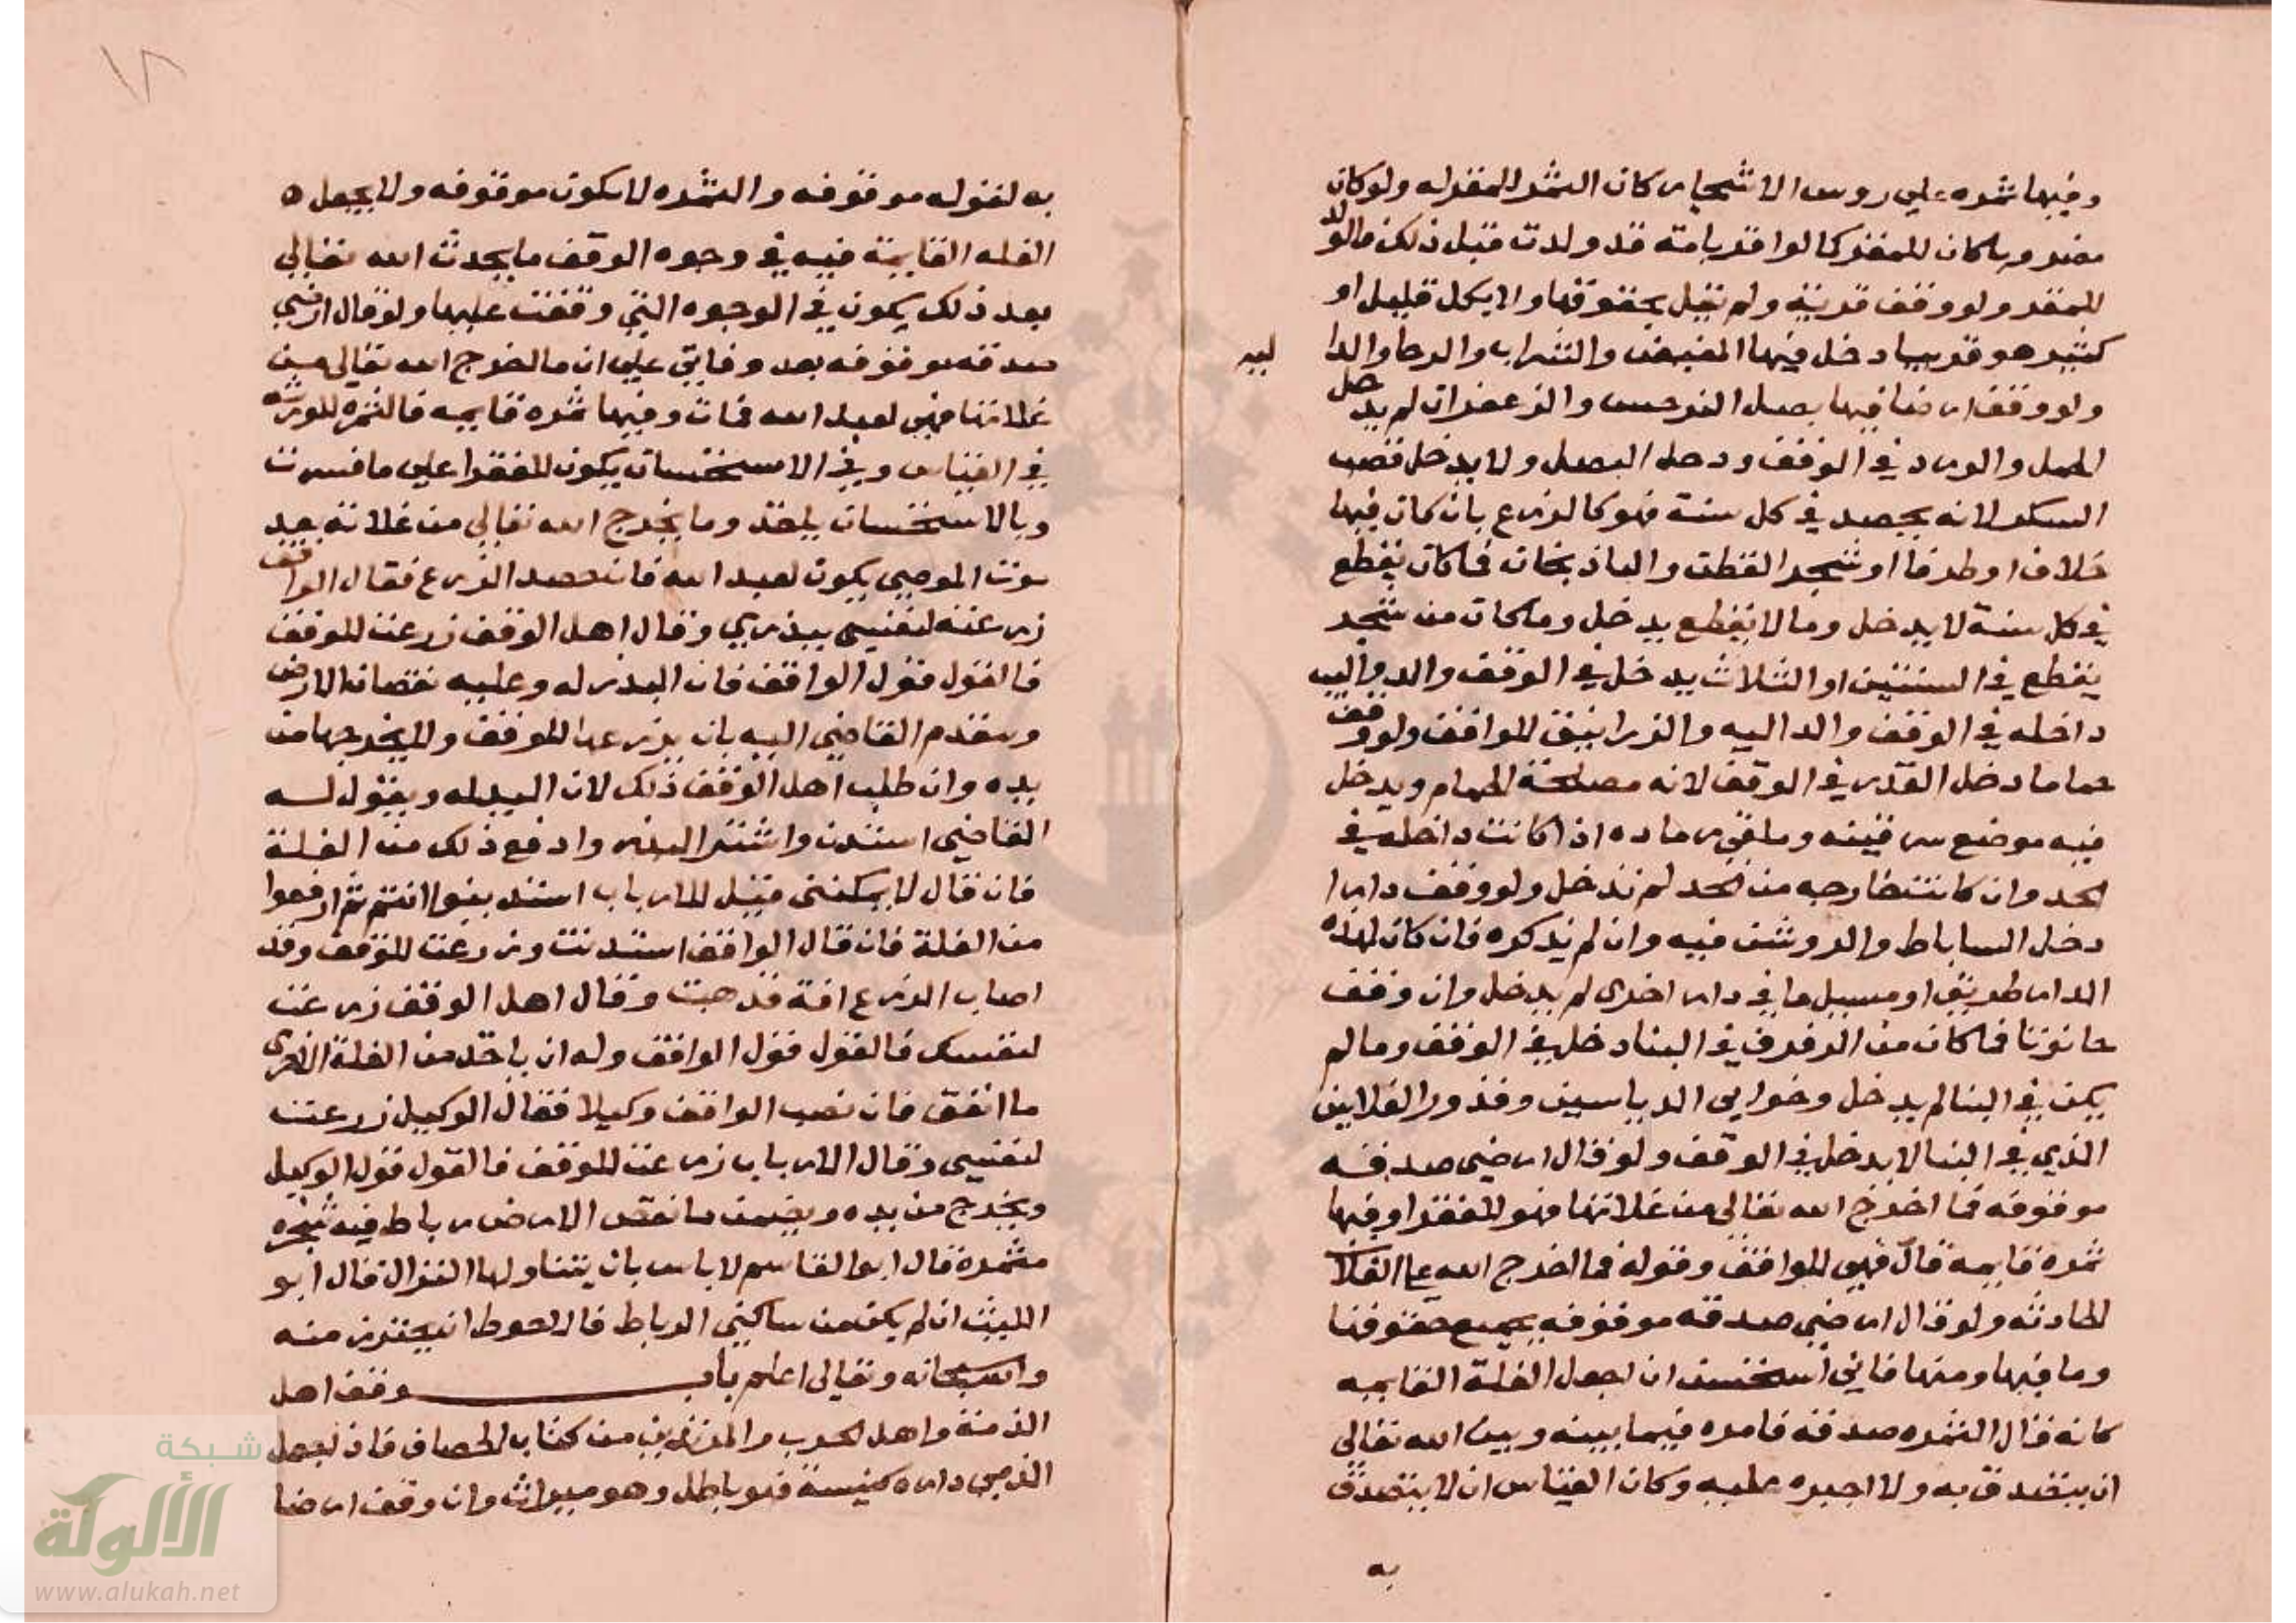 وفيها ثمره علي روس الاشجار كان الثمر للمقر له ولو كان
مضمومه كان للمقر كما لو اقر بامته قد ولدت قبل ذلك فالولد
للمقر ولو وقف قرية ولم يقل بحقوقها ولا بكل قليل او
كثير هو فيها دخل فيها المغيض والشراب والرحا والدا
ليه
ولو وقف ارضا فيها بصل النرجس والزعفران لم يدخل
الحمل والورد في الوقف ودخل البصل ولا يدخل قصب
السكر لانه يحصد في كل سنة فهو كالزرع بان كان فيها
خلاف او طرفا او شجر القطن والباذنجان فما كان يقطع
في كل سنة لا يدخل وما لا يقطع يدخل وما كان من شجر
يقطع في السنتين او الثلاث يدخل في الوقف والدواليب
داخله في الوقف والداليه والزرانيق للواقف ولو وقف
حماما دخل القدر في الوقف لانه مصلحة الحمام ويدخل
فيه موضع سرقينه وملقى رماده اذا كانت داخله في
الحد وان كانت خارجه من الحد لم تدخل ولو وقف دارا
دخل الساباط والروشن فيه وان لم يذكره فان كان لهذه
الدار طريق او مسيل ما في دار اخرى لم يدخل وان وقف
حانوتا فما كان من الرفوف في البنا دخل في الوقف وما لم
يكن في البنا لم يدخل وخوابي الدباسين وقدور القلايين
الذي في البنا لا يدخل في الوقف ولو قال ارضي صدقه
موقوفه فما اخرج الله تعالى من غلاتها فهو للفقرا وفيها
ثمره قايمه قال فهي للواقف وقوله فما اخرج الله علي الغلات
الحادثه ولو قال ارضي صدقه موقوفه بجميع حقوقها
وما فيها ومنها فاني استحسن ان اجعل الغلة القايمه
كانه قال الثمره صدقه فامره فيما بينه وبين الله تعالى
ان يتصدق به ولا اجبره عليه وكان القياس ان لا يتصدق
به
١٨
به لقوله موقوفه والثمره لا تكون موقوفه ولا يجعل ه
الغله القايمة فيه في وجوه الوقف ما يحدث الله تعالى
بعد ذلك يكون في الوجوه التي وقفت عليها ولو قال ارضي
صدقه موقوفه بعد وفاتي علي ان ما اخرج الله تعالى من
غلاتها فهي لعبد الله فمات وفيها ثمره قايمه فالثمره للورثه
في القياس وفي الاستحسان يكون للفقرا علي ما فسرت
وبالاستحسان ياخذ وما يخرج الله تعالى من غلاته بعد
موت الموصي يكون لعبد الله فان حصد الزرع فقال الواقف
زرعته لنفسي ببذري وقال اهل الوقف زرعت للوقف
فالقول قول الواقف فان البذر له وعليه نقصان الارض
ويتقدم القاضي اليه بان يزرعها للوقف ولا يخرجها من
يده وان طلب اهل الوقف ذلك لان اليد له ويقول له
القاضي استدن واشتر البذر وادفع ذلك من الغلة
فان قال لا يمكنني قيل للارباب استدينوا انتم ثم ارفعوا
من الغلة فان قال الواقف استدنت وزرعت للوقف وقد
اصاب الزرع افة فذهبت وقال اهل الوقف زرعت
لنفسك فالقول قول الواقف وله ان ياخذ من الغلة الاخرى
ما انفق فان نصب الواقف وكيلا فقال الوكيل زرعت
لنفسي وقال الارباب زرعت للوقف فالقول قول الوكيل
ويخرج من يده ويضمن ما نقص الارض رباط فيه شجره
مثمرة قال ابو القاسم لا باس بان يتناولها النزال قال ابو
الليث ان لم يكن من ساكني الرباط فالاحوط ان يحترز منه
والله سبحانه وتعالى اعلم باب وقف اهل
الذمة واهل الحرب والمرتدين من كتاب الخصاف فان جعل
الذمي داره كنيسة فهو باطل وهو ميراث وان وقف ارضا
شبكة
الألوكة
www.alukah.net